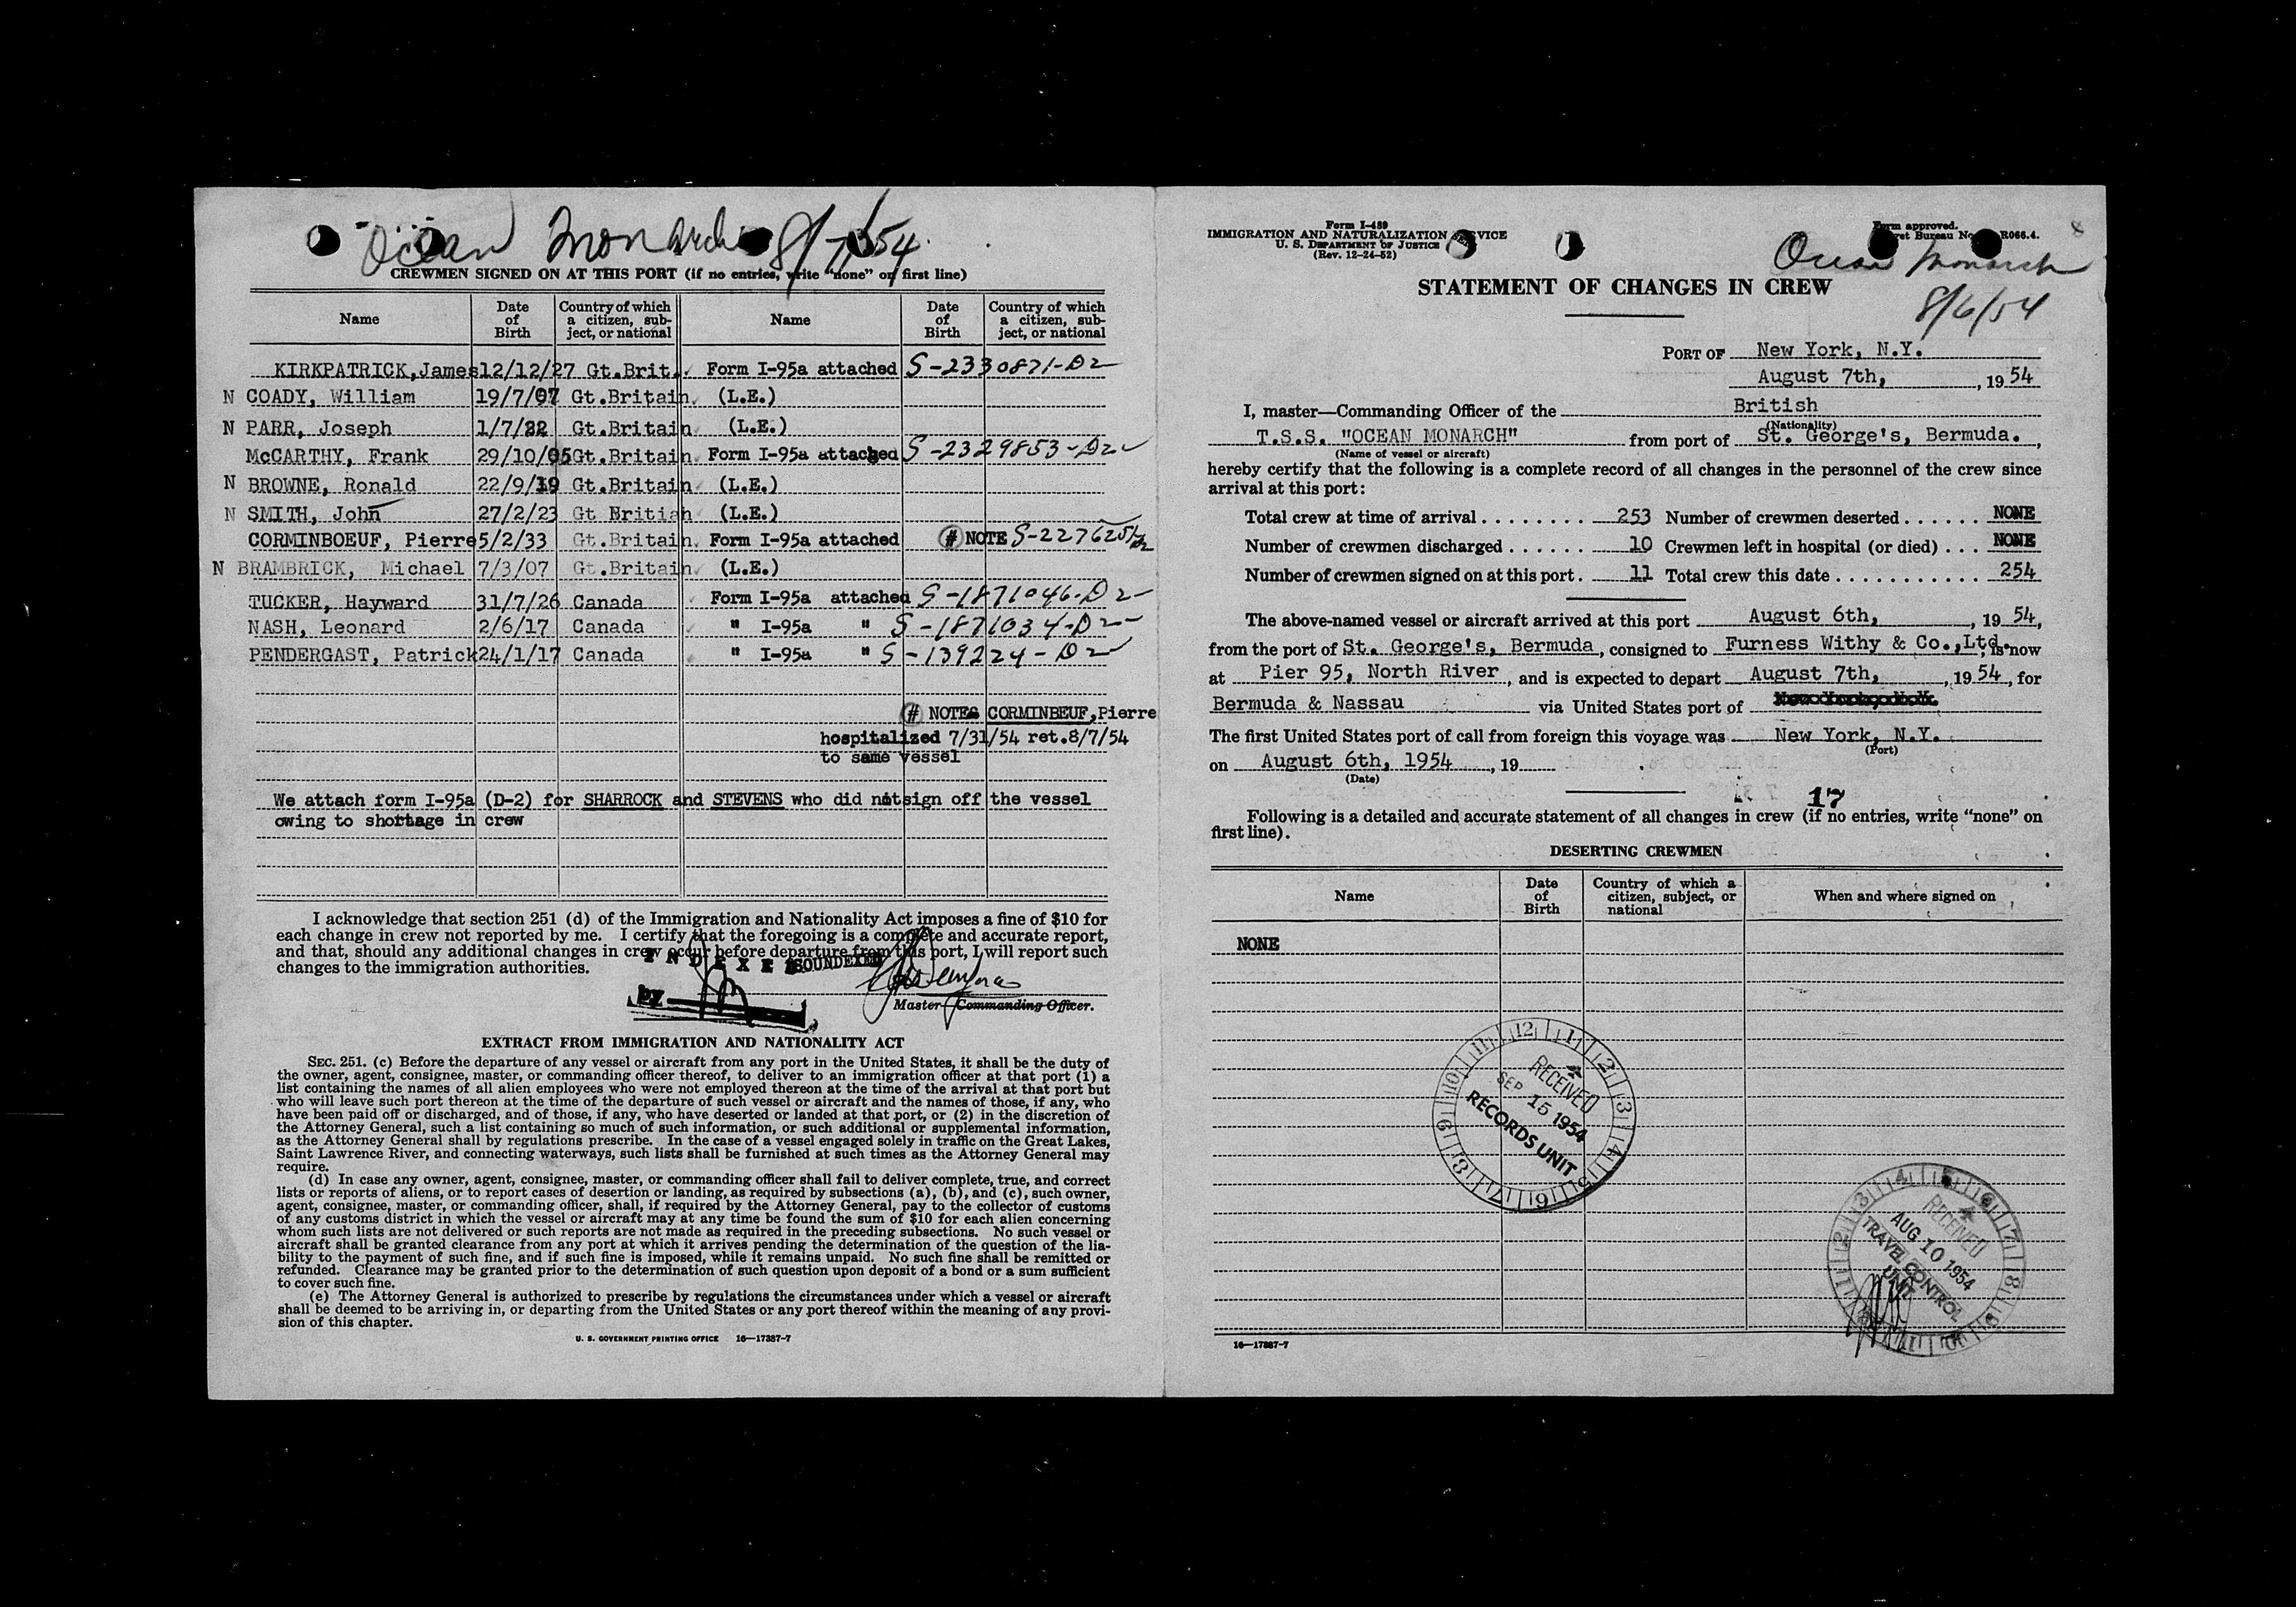 Ocean Monarch 8/7/54.
CREWMEN SIGNED ON AT THIS PORT (if no entries, write "none" on first line)
Name
Date of Birth
Country of which a citizen, subject, or national
Name
Date of Birth
Country of which a citizen, subject, or national
KIRKPATRICK,James 12/12/27 Gt.Brit. Form I-95a attached S-2330871-D2
N COADY, William 19/7/07 Gt.Britain (L.E.)
N PARR, Joseph 1/7/22 Gt.Britain (L.E.)
McCARTHY, Frank 29/10/05 Gt.Britain Form I-95a attached S-2329853-D2
N BROWNE, Ronald 22/9/19 Gt.Britain (L.E.)
N SMITH, John 27/2/23 Gt Britian (L.E.)
CORMINBOEUF, Pierre 5/2/33 Gt.Britain Form I-95a attached # NOTE S-227625 D2
N BRAMBRICK, Michael 7/3/07 Gt.Britain (L.E.)
TUCKER, Hayward 31/7/26 Canada Form I-95a attached S-1871046-D2
NASH, Leonard 2/6/17 Canada " I-95a " S-1871034-D2
PENDERGAST, Patrick 24/1/17 Canada " I-95a " S-139224-D2
# NOTES CORMINBEUF,Pierre
hospitalized 7/31/54 ret.8/7/54
to same vessel
We attach form I-95a (D-2) for SHARROCK and STEVENS who did not sign off the vessel
owing to shortage in crew
I acknowledge that section 251 (d) of the Immigration and Nationality Act imposes a fine of $10 for
each change in crew not reported by me. I certify that the foregoing is a complete and accurate report,
and that, should any additional changes in crew occur before departure from this port, I will report such
changes to the immigration authorities.
INDEXED SOUNDEXED
BY
Master—Commanding Officer.
EXTRACT FROM IMMIGRATION AND NATIONALITY ACT
SEC. 251. (c) Before the departure of any vessel or aircraft from any port in the United States, it shall be the duty of
the owner, agent, consignee, master, or commanding officer thereof, to deliver to an immigration officer at that port (1) a
list containing the names of all alien employees who were not employed thereon at the time of the arrival at that port but
who will leave such port thereon at the time of the departure of such vessel or aircraft and the names of those, if any, who
have been paid off or discharged, and of those, if any, who have deserted or landed at that port, or (2) in the discretion of
the Attorney General, such a list containing so much of such information, or such additional or supplemental information,
as the Attorney General shall by regulations prescribe. In the case of a vessel engaged solely in traffic on the Great Lakes,
Saint Lawrence River, and connecting waterways, such lists shall be furnished at such times as the Attorney General may
require.
(d) In case any owner, agent, consignee, master, or commanding officer shall fail to deliver complete, true, and correct
lists or reports of aliens, or to report cases of desertion or landing, as required by subsections (a), (b), and (c), such owner,
agent, consignee, master, or commanding officer, shall, if required by the Attorney General, pay to the collector of customs
of any customs district in which the vessel or aircraft may at any time be found the sum of $10 for each alien concerning
whom such lists are not delivered or such reports are not made as required in the preceding subsections. No such vessel or
aircraft shall be granted clearance from any port at which it arrives pending the determination of the question of the lia-
bility to the payment of such fine, and if such fine is imposed, while it remains unpaid. No such fine shall be remitted or
refunded. Clearance may be granted prior to the determination of such question upon deposit of a bond or a sum sufficient
to cover such fine.
(e) The Attorney General is authorized to prescribe by regulations the circumstances under which a vessel or aircraft
shall be deemed to be arriving in, or departing from the United States or any port thereof within the meaning of any provi-
sion of this chapter.
U. S. GOVERNMENT PRINTING OFFICE 16—17387-7
Form I-489
IMMIGRATION AND NATURALIZATION SERVICE
U. S. DEPARTMENT OF JUSTICE
(Rev. 12-24-52)
Form approved.
Budget Bureau No. R066.4.
Ocean Monarch
8/6/54
STATEMENT OF CHANGES IN CREW
PORT OF New York, N.Y.
August 7th, , 19 54
I, master—Commanding Officer of the British
(Nationality)
T.S.S. "OCEAN MONARCH" from port of St. George's, Bermuda. ,
(Name of vessel or aircraft)
hereby certify that the following is a complete record of all changes in the personnel of the crew since
arrival at this port:
Total crew at time of arrival . . . . . . . . 253 Number of crewmen deserted . . . . . . NONE
Number of crewmen discharged . . . . . . 10 Crewmen left in hospital (or died) . . . NONE
Number of crewmen signed on at this port . 11 Total crew this date . . . . . . . . . . . . 254
The above-named vessel or aircraft arrived at this port August 6th, , 19 54,
from the port of St. George's, Bermuda , consigned to Furness Withy & Co.,Ltd. , is now
at Pier 95, North River , and is expected to depart August 7th, , 19 54 , for
Bermuda & Nassau via United States port of
The first United States port of call from foreign this voyage was New York, N.Y.
(Port)
on August 6th, 1954 , 19
(Date)
17
Following is a detailed and accurate statement of all changes in crew (if no entries, write "none" on
first line).
DESERTING CREWMEN
Name
Date of Birth
Country of which a citizen, subject, or national
When and where signed on
NONE
RECEIVED
SEP 15 1954
RECORDS UNIT
RECEIVED
AUG 10 1954
TRAVEL CONTROL
UNIT
16—17387-7